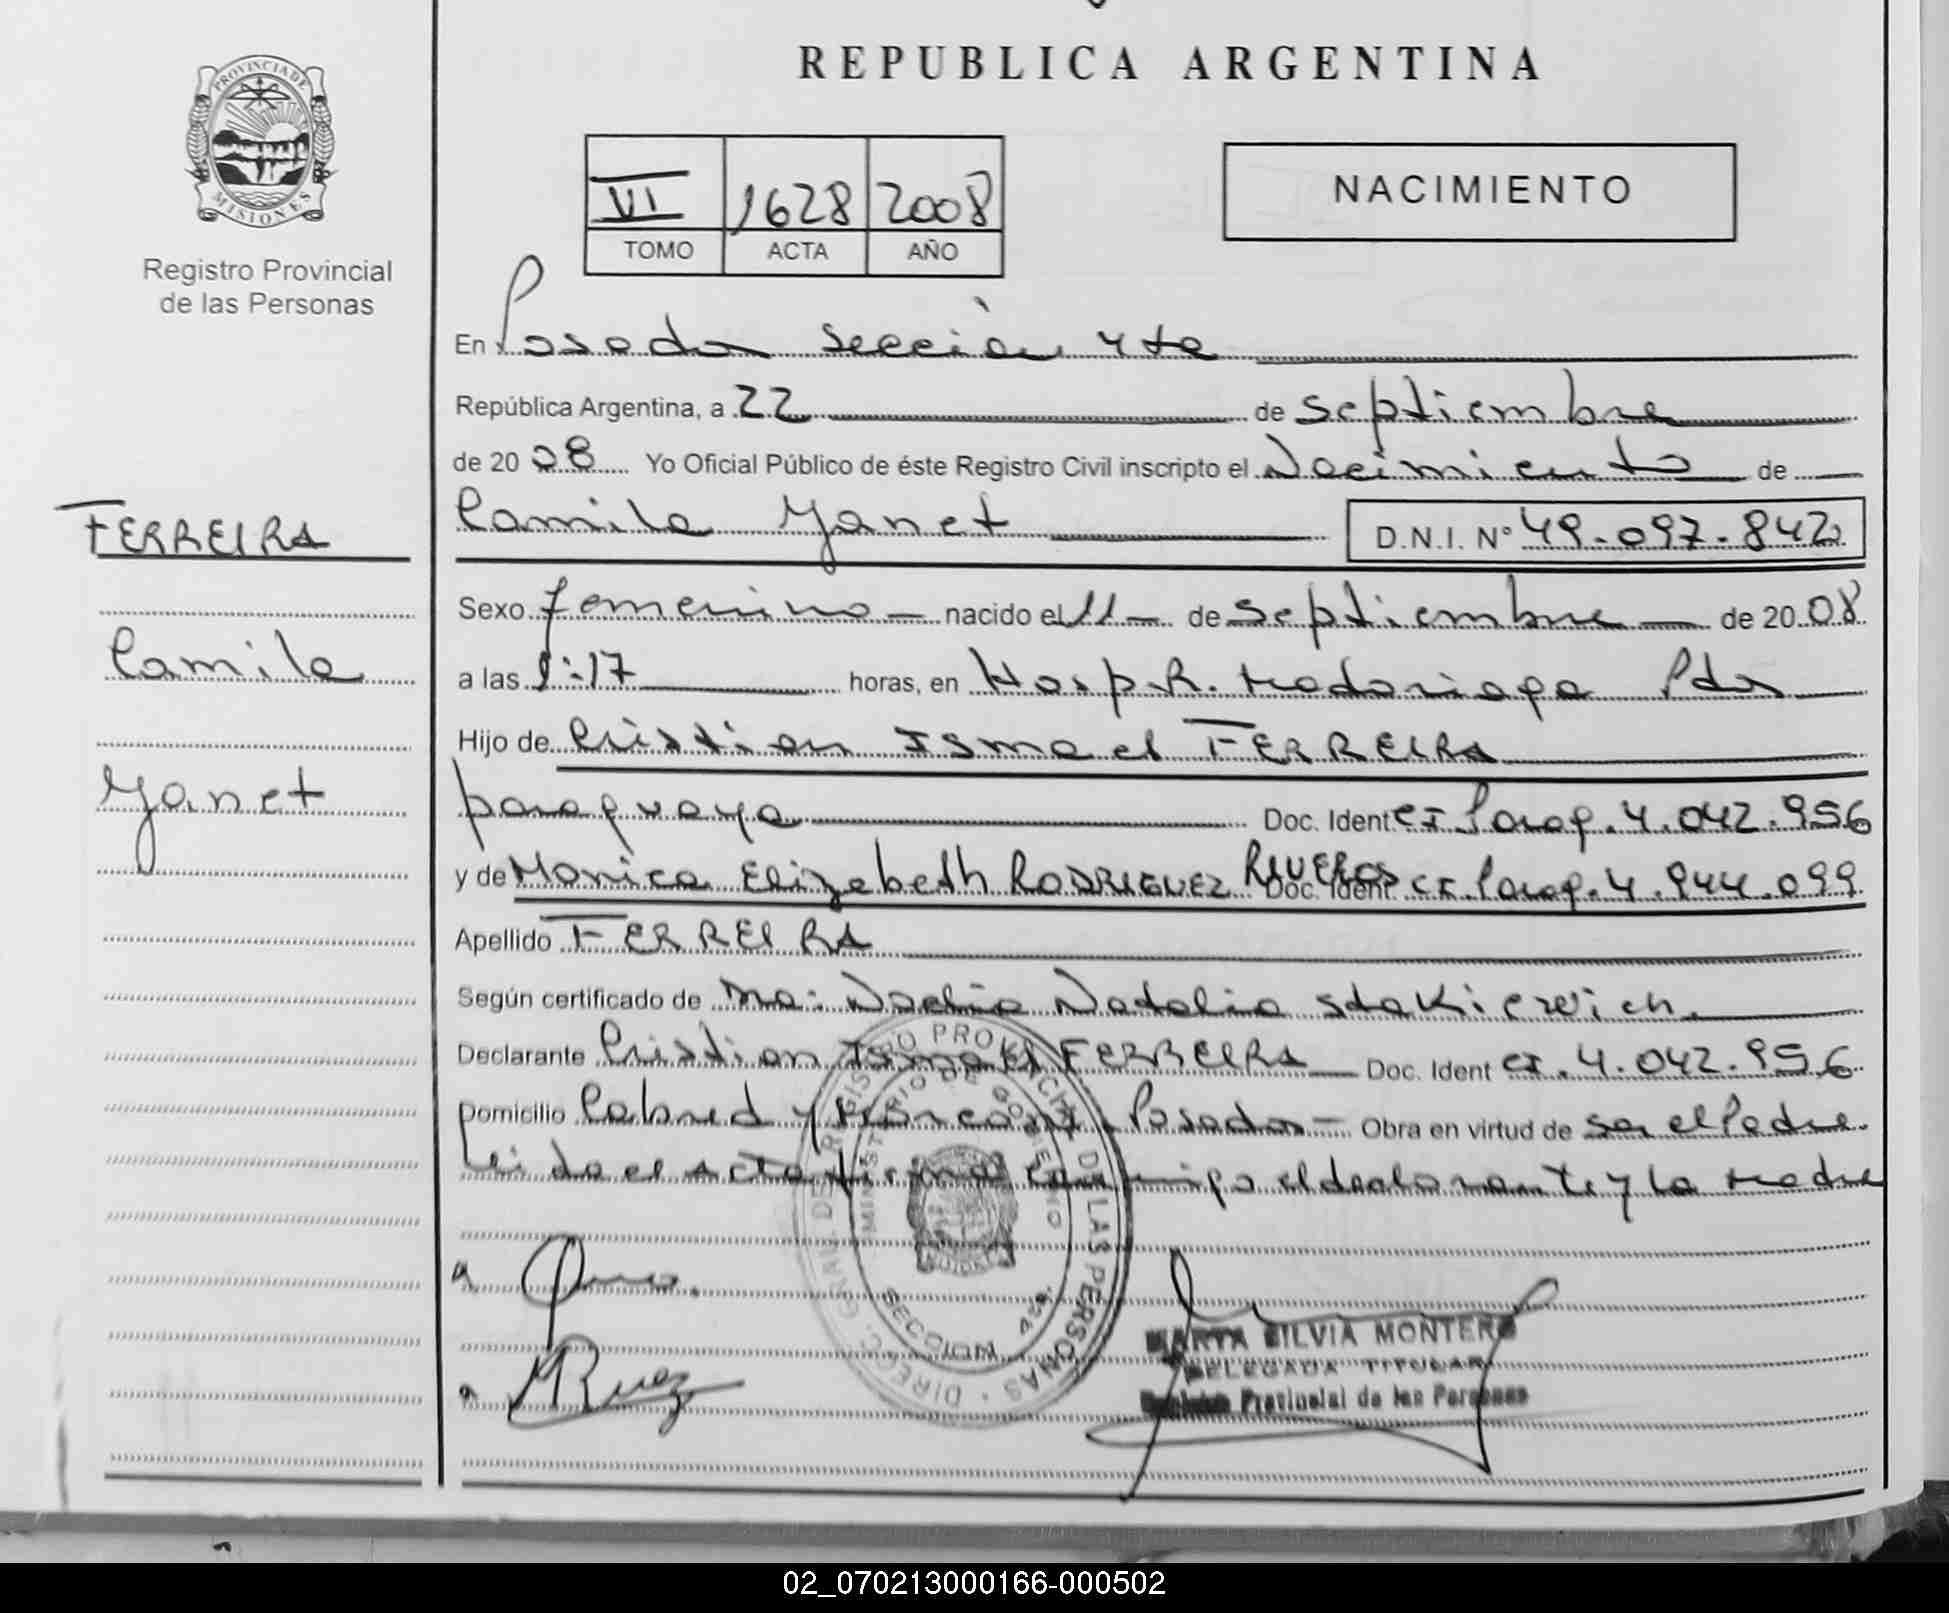 REPUBLICA ARGENTINA
PROVINCIA DE
MISIONES
Registro Provincial
de las Personas
VI 1628 2008
TOMO ACTA AÑO
NACIMIENTO
En Posadas sección 4ta
República Argentina, a 22 de septiembre
de 2008 Yo Oficial Público de éste Registro Civil inscripto el Nacimiento de
Camila Yanet D.N.I. N° 49.097.842
FERREIRA
Camila
Yanet
Sexo femenino nacido el 11 de septiembre de 2008
a las 9:17 horas, en Hosp. R. Madariaga Pdas
Hijo de Cristian Ismael FERREIRA
paraguaya Doc. Ident CI Parag. 4.042.956
y de Monica Elizabeth RODRIGUEZ RIVEROS Doc. Ident. CI. Parag. 4.944.099
Apellido FERREIRA
Según certificado de Noelia Natalia Stakiewich
Declarante Cristian Ismael FERREIRA Doc. Ident CI. 4.042.956
Domicilio Cabred y Posadas Obra en virtud de ser el Padre.
Leida el acta firma conmigo el declarante y la madre
DIRECC. GRAL. DEL REGISTRO PROVINCIAL DE LAS PERSONAS
MINISTERIO DE GOBIERNO
SECCION 4ta.
MARTA SILVIA MONTERO
DELEGADA TITULAR
Provincial de las Personas
02_070213000166-000502